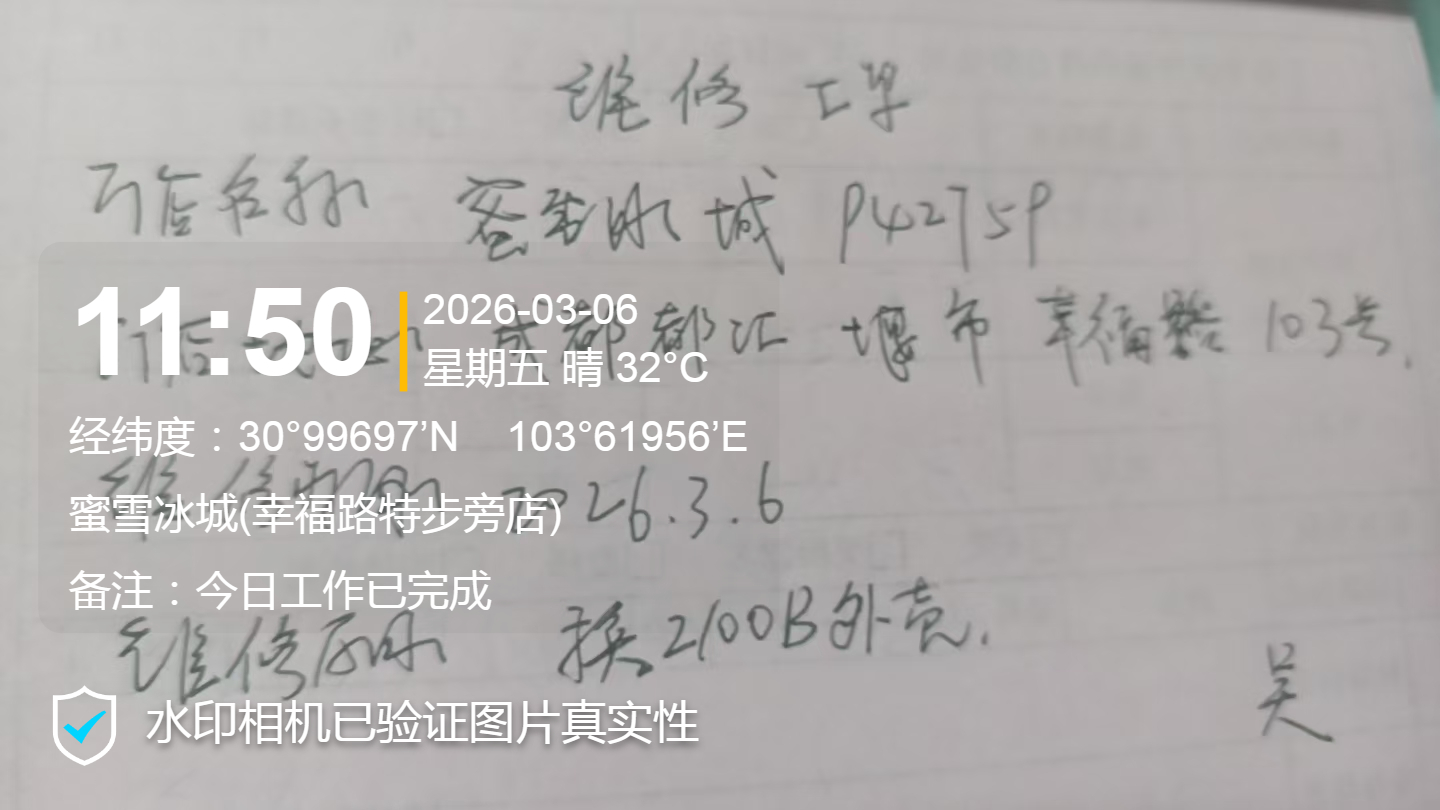 维修工单
门店名称 蜜雪冰城 P42759
门店 成都都江堰市幸福路103号.
11:50
2026-03-06
星期五 晴 32°C
经纬度：30°99697’N 103°61956’E
维修 26.3.6
蜜雪冰城(幸福路特步旁店)
备注：今日工作已完成
维修 换2100B外壳.
吴
水印相机已验证图片真实性